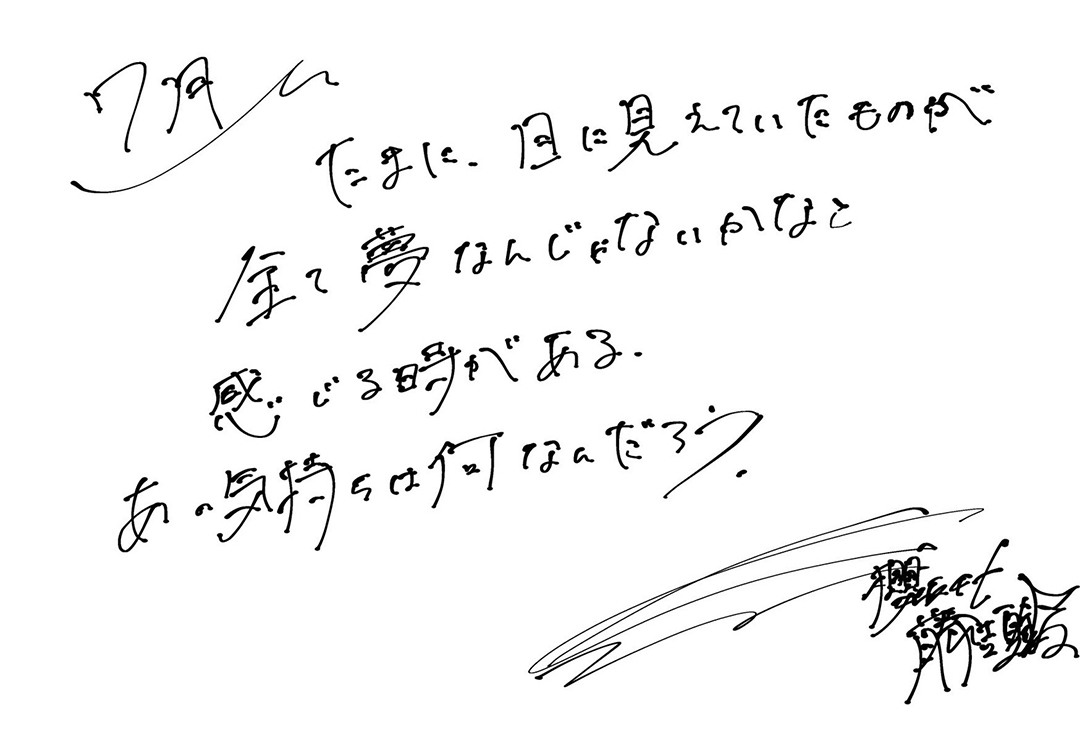 7月
たまに、目に見えていたものが
全て夢なんじゃないかなと
感じる時がある.
あの気持ちは何なんだろう.